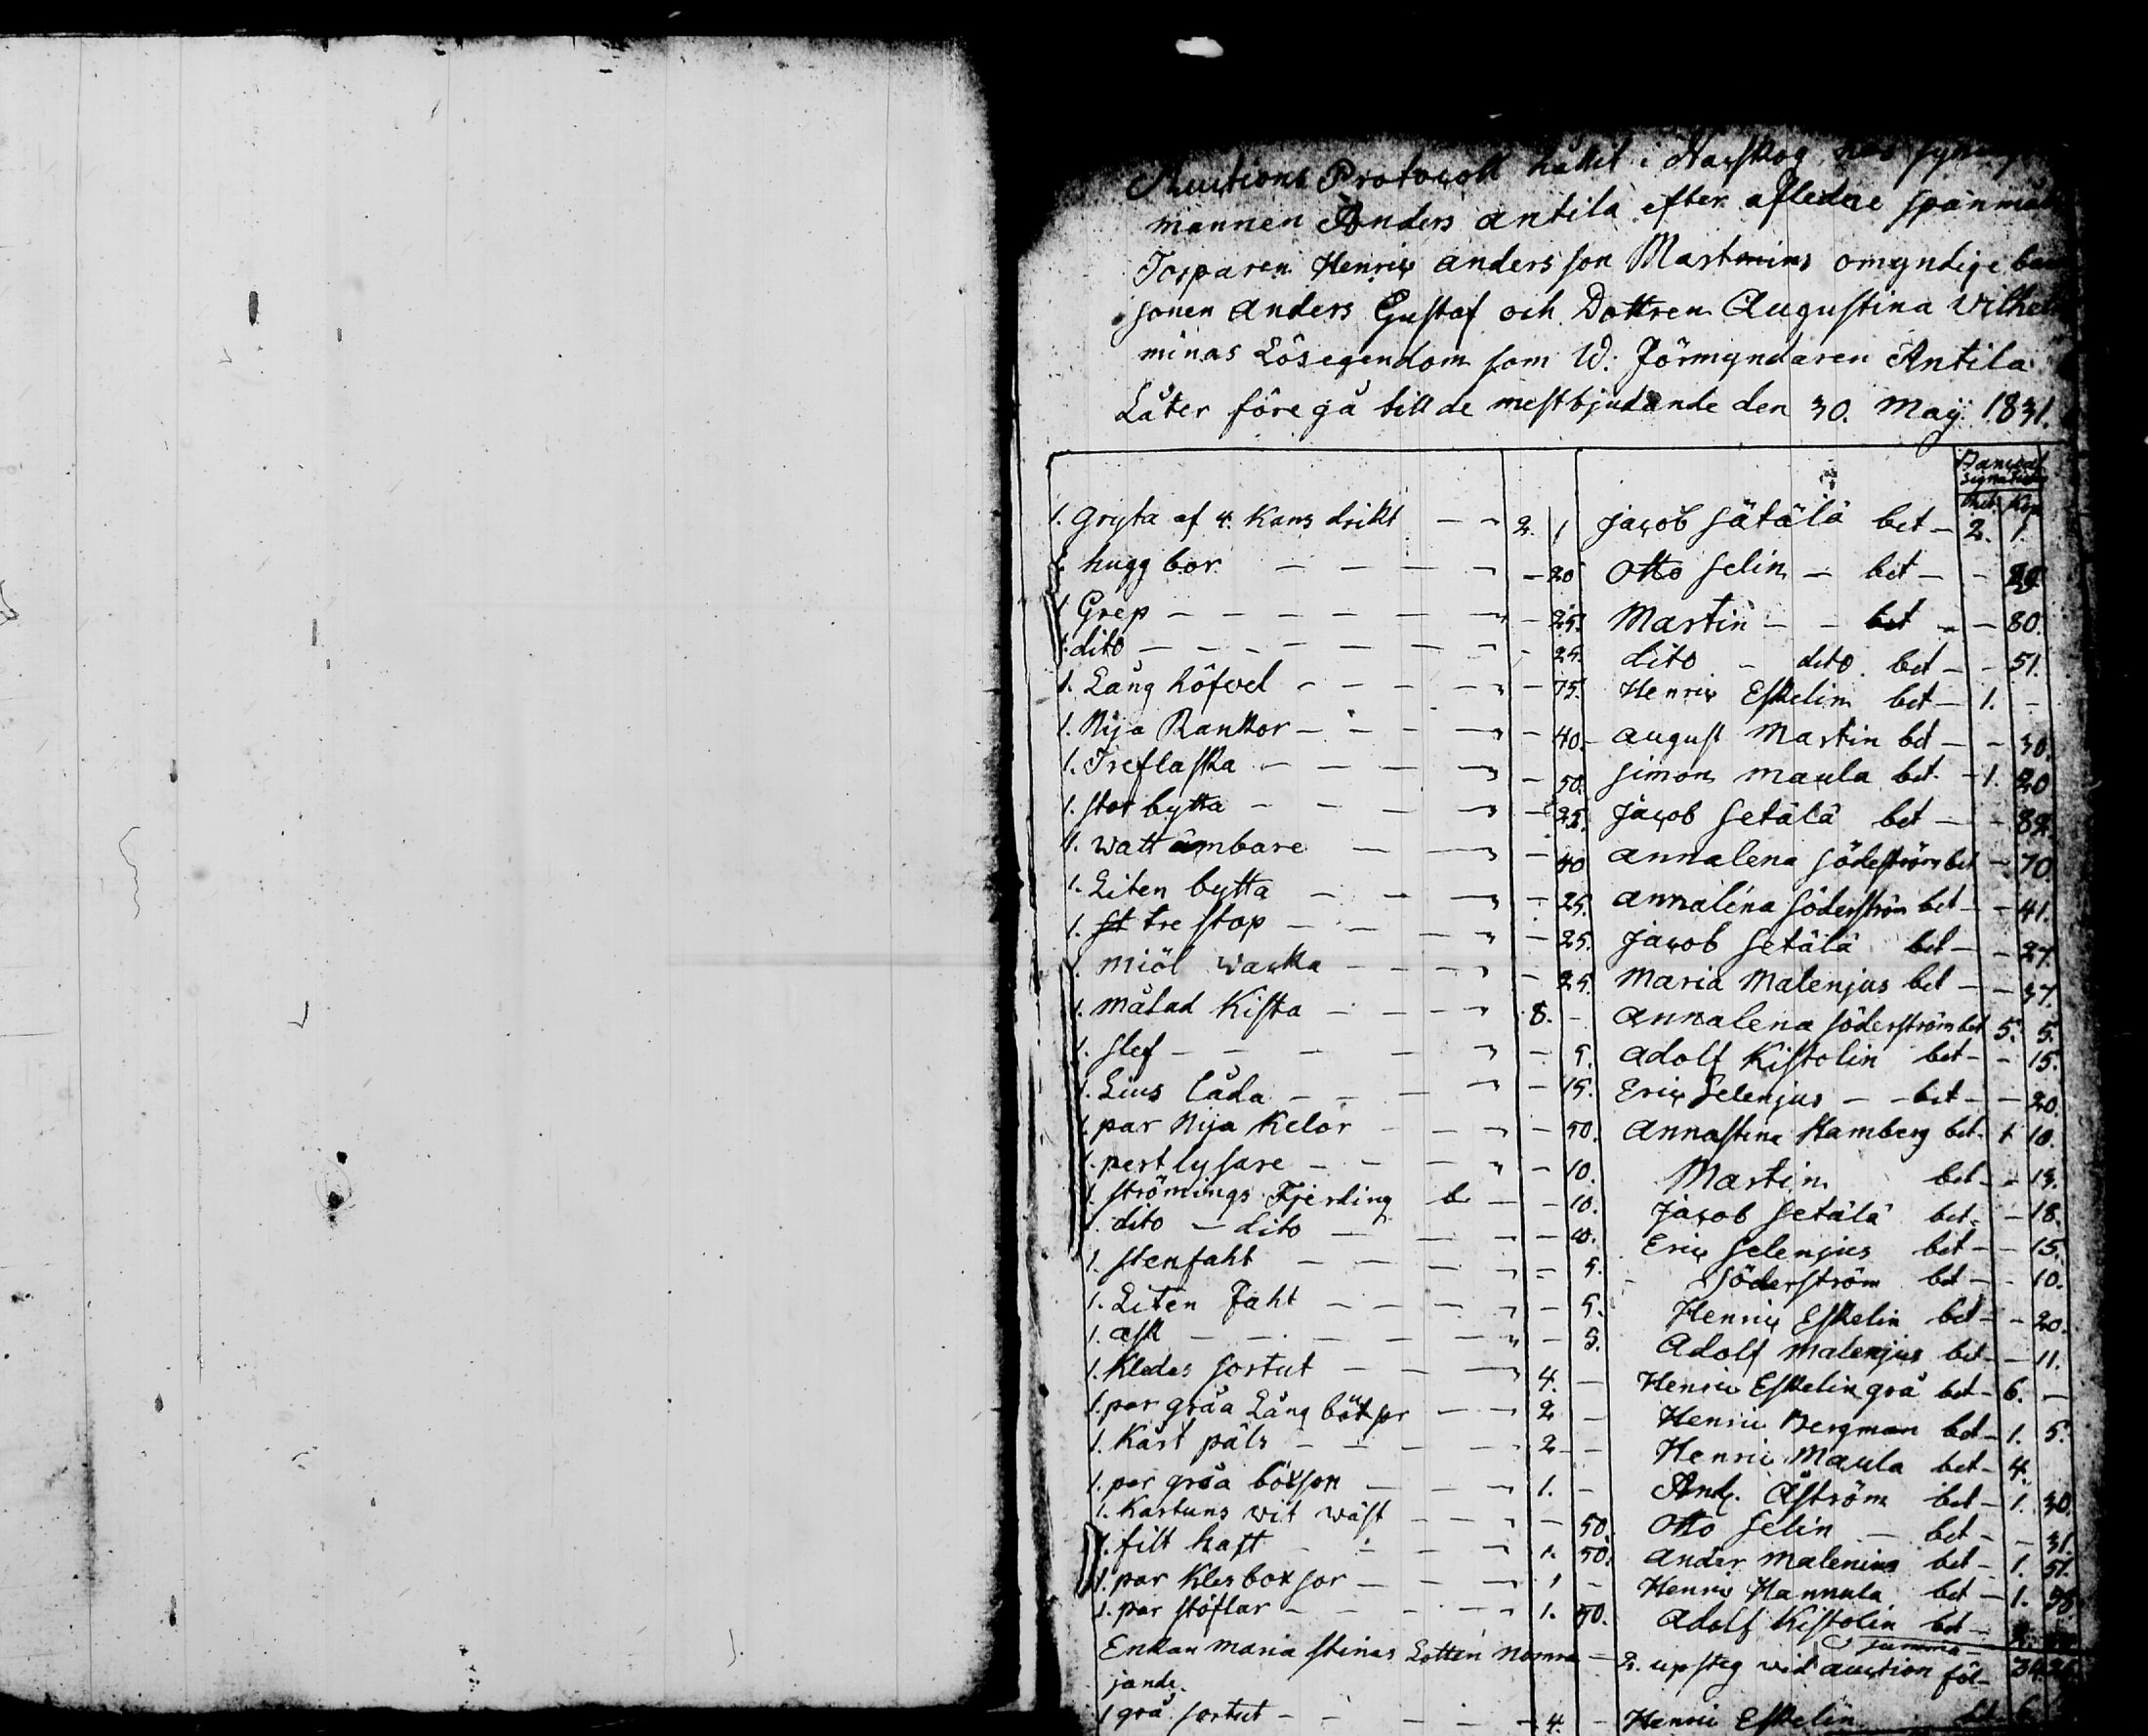 Auctions Protocoll hållit i Harskog hos
mannen Anders Antila efter afledne spånmåls
Torparen Henric Andersson Martmins omyndige barn
sonen Anders Gustaf och Dottren Augustina Vilhel
minas Lösegendom som W. Förmyndaren Antila
Låter föregå till de mestbjudande den 30. May 1831.
Banco
Kop
1. gryta af 4. Kans drikt - - 2. 1 Jacob Sätälä bet - 2. 1.
1. hugg bor - - - - - 20 Otto Selin - bet - -
1. Grep - - - - - - 25. Martin - - bet - - 80.
1. dito - - - - - - 25. dito - dito bet - - 51.
1. Lång höfvel - - - - - 75. Henric Eskelin bet - 1. -
1. Nya Rankor - - - - - 40. August Martin bet - - 30.
1. Treflaska - - - - - 50. Simon Maula bet - 1. 20
1. stor bytta - - - - - 25. Jacob Setälä bet - - 82.
1. watt ämbare - - - 40 Annalena Söderström bet - 70.
1. Liten bytta - - - - 25. Annalena Söderström bet - - 41.
1. st tre stop - - - - 25. Jacob Setälä bet - - 27.
1. miöl wacka - - - - 25. Maria Malenjus bet - - 37.
1. målad Kista - - - - 8. - Annalena Söderström bet 5. 5.
1. slef - - - - - 5. Adolf Kistolin bet - - 15.
1. Lius låda - - - - 15. Eric Selenjus - - bet - - 20.
1. par Nya Kelor - - - 50. Annastina Hamberg bet. 1 10.
1. pert lysare - - - - 10. Martin bet - - 13.
1. strömings Fjerding - - 10. Jacob Setälä bet - - 18.
1. dito - dito - - - - 10. Eric Selenjus bet - - 15.
1. stenfaht - - - - - 5. Söderström bet - - 10.
1. Liten Faht - - - - - 5. Henric Eskelin bet - - 20.
1. ask - - - - - - 3. Adolf Malenjus bet - - 11.
1. Kledes sortut - - - 4. - Henric Eskelin grå bet - 6. -
1. par gråa Lång böxsor - - 2 - Henric Bergman bet - 1. 5.
1. Kast päls - - - - 2 - Henric Maula bet - 4.
1. par gråa böxsor - - - 1. - And. Åström bet - 1. 30
1. Kartuns wit wäst - - - - 50. Otto Selin - bet - - 31.
1. filt hatt - - - - 1. 50. Ander Malenius bet - 1. 51.
1. par Kles boxsor - - - 1 - Henric Hannula bet - 1. 38
1. par stöflar - - - - 1. 50. Adolf Kistolin bet -
summa
Enkan Maria Stinas Lotten - upsteg wid auction föl-
jande.
1 grå sortut - - - - - 4. - Henric Eskelin 6.